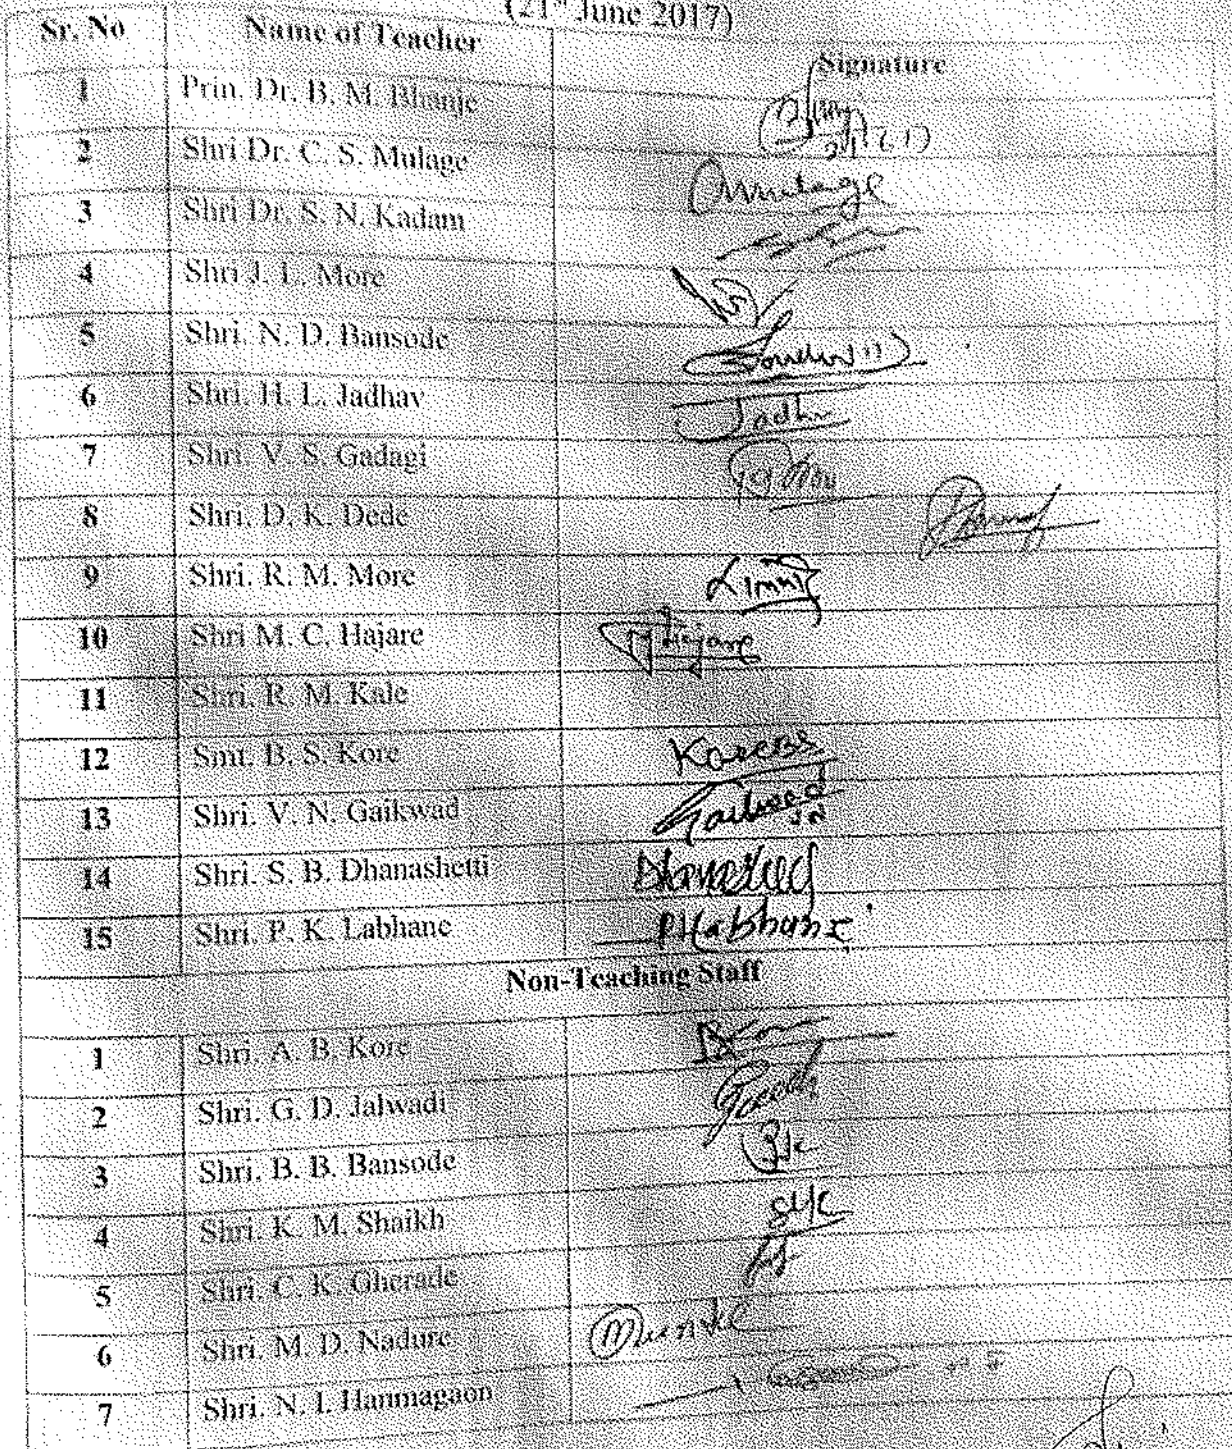 (21st June 2017)
Sr. No Name of Teacher Signature
1 Prin. Dr. B. M. Bhanje
2 Shri Dr. C. S. Mulage Mulage
3 Shri Dr. S. N. Kadam
4 Shri J. L. More
5 Shri. N. D. Bansode
6 Shri. H. L. Jadhav Jadh
7 Shri. V. S. Gadagi
8 Shri. D. K. Dede
9 Shri. R. M. More
10 Shri M. C. Hajare Hajare
11 Shri. R. M. Kale
12 Smt. B. S. Kore KoreBS
13 Shri. V. N. Gaikwad
14 Shri. S. B. Dhanashetti
15 Shri. P. K. Labhane PKLabhane
Non-Teaching Staff
1 Shri. A. B. Kore
2 Shri. G. D. Jalwadi
3 Shri. B. B. Bansode
4 Shri. K. M. Shaikh
5 Shri. C. K. Gherade
6 Shri. M. D. Nadure
7 Shri. N. I. Hanmagaon